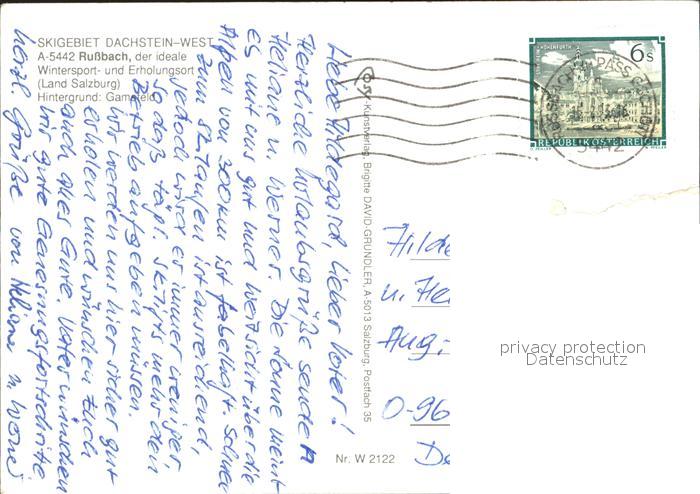 SKIGEBIET DACHSTEIN–WEST
A-5442 Rußbach, der ideale
Wintersport- und Erholungsort
(Land Salzburg)
Hintergrund: Gamsfeld
Liebe Hildegard, lieber Vater!
Herzliche Urlaubsgrüße senden
Heliane u. Werner. Die Sonne meint
es mit uns gut und Weitsicht über die
Alpen von 200km ist fabelhaft. Schnee
zum Skilaufen ist ausreichend,
jedoch wird es immer weniger,
so daß tägl. Skilifts mehr den
Betrieb aufgeben müssen.
Wir werden uns hier sicher gut
erholen und wünschen Euch
auch alles Gute. Vater wünschen
wir gute Genesungsfortschritte
herzl. Grüße von Heliane u. Werner
-Kunstverlag, Brigitte DAVID-GRUNDLER, A-5013 Salzburg, Postfach 35
Nr. W 2122
HOHENFURTH
6 S
REPUBLIK ÖSTERREICH
5442
Hilde
u. He
Aug
D-96
De
privacy protection
Datenschutz